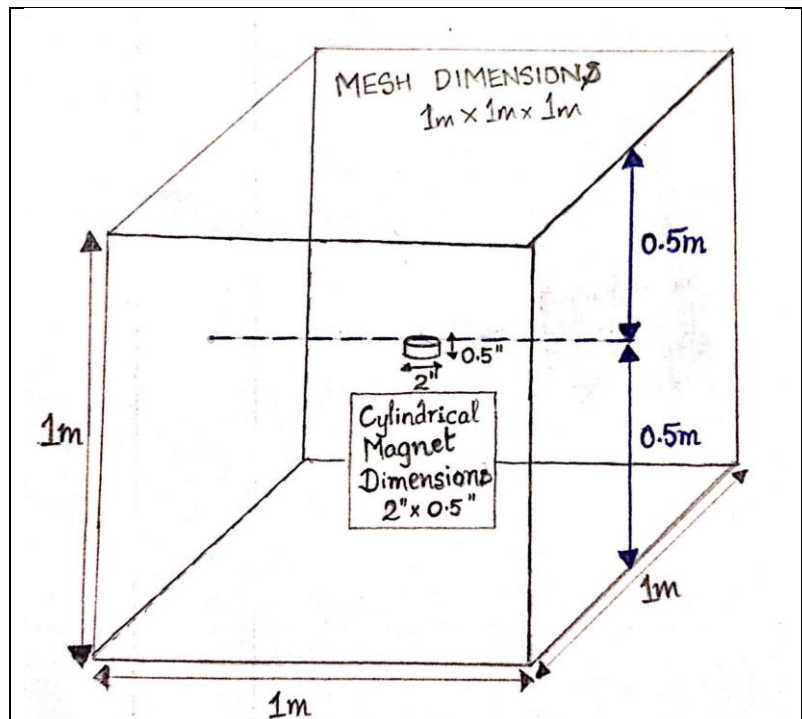 MESH DIMENSIONS
1m × 1m × 1m
0.5m
0.5"
2"
Cylindrical
Magnet
Dimensions
2" × 0.5"
1m
0.5m
1m
1m